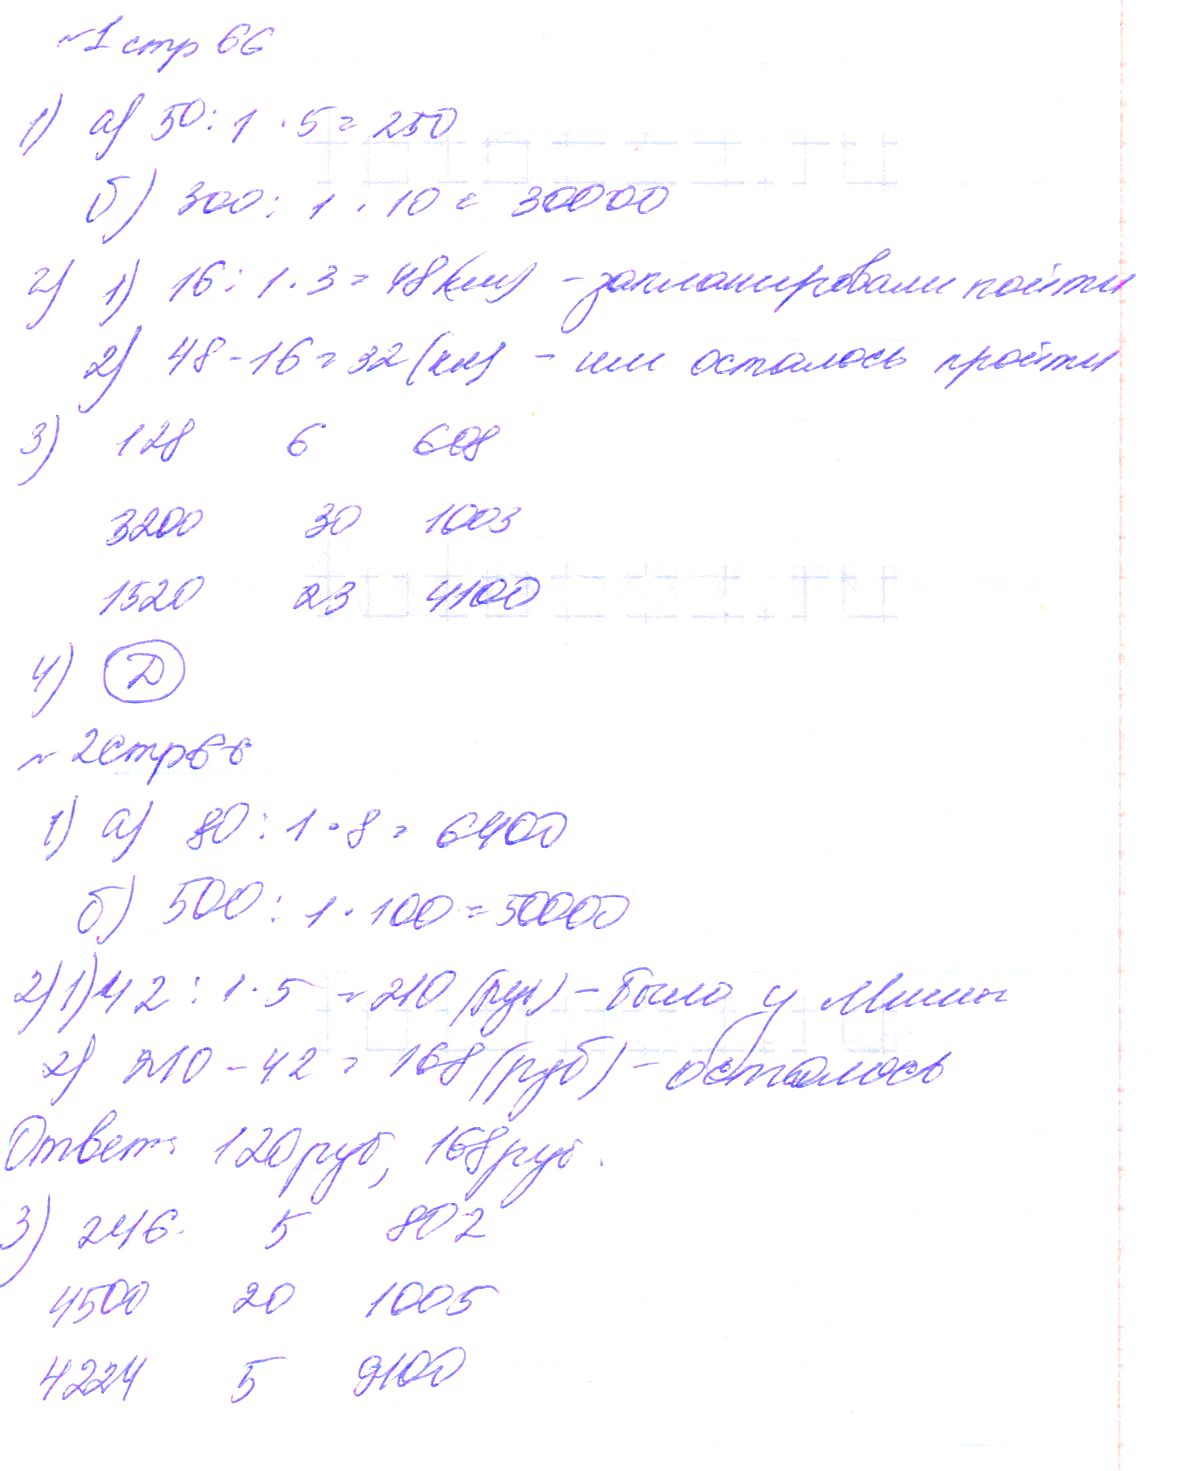 №1 стр 66
1) а) 50:1·5=250
б) 300:1·10=30000
2) 1) 16:1·3=48(км) - запланировали пойти
2) 48-16=32(км) - им осталось пройти
3) 128 6 608
3200 30 1003
1520 23 4100
4) Д
№2 стр 66
1) а) 80:1·8=6400
б) 500:1·100=50000
2) 1) 42:1·5=210(руб) - было у Миши
2) 210-42=168(руб) - осталось
Ответ: 120 руб, 168 руб.
3) 246 5 802
4500 20 1005
4224 5 9100